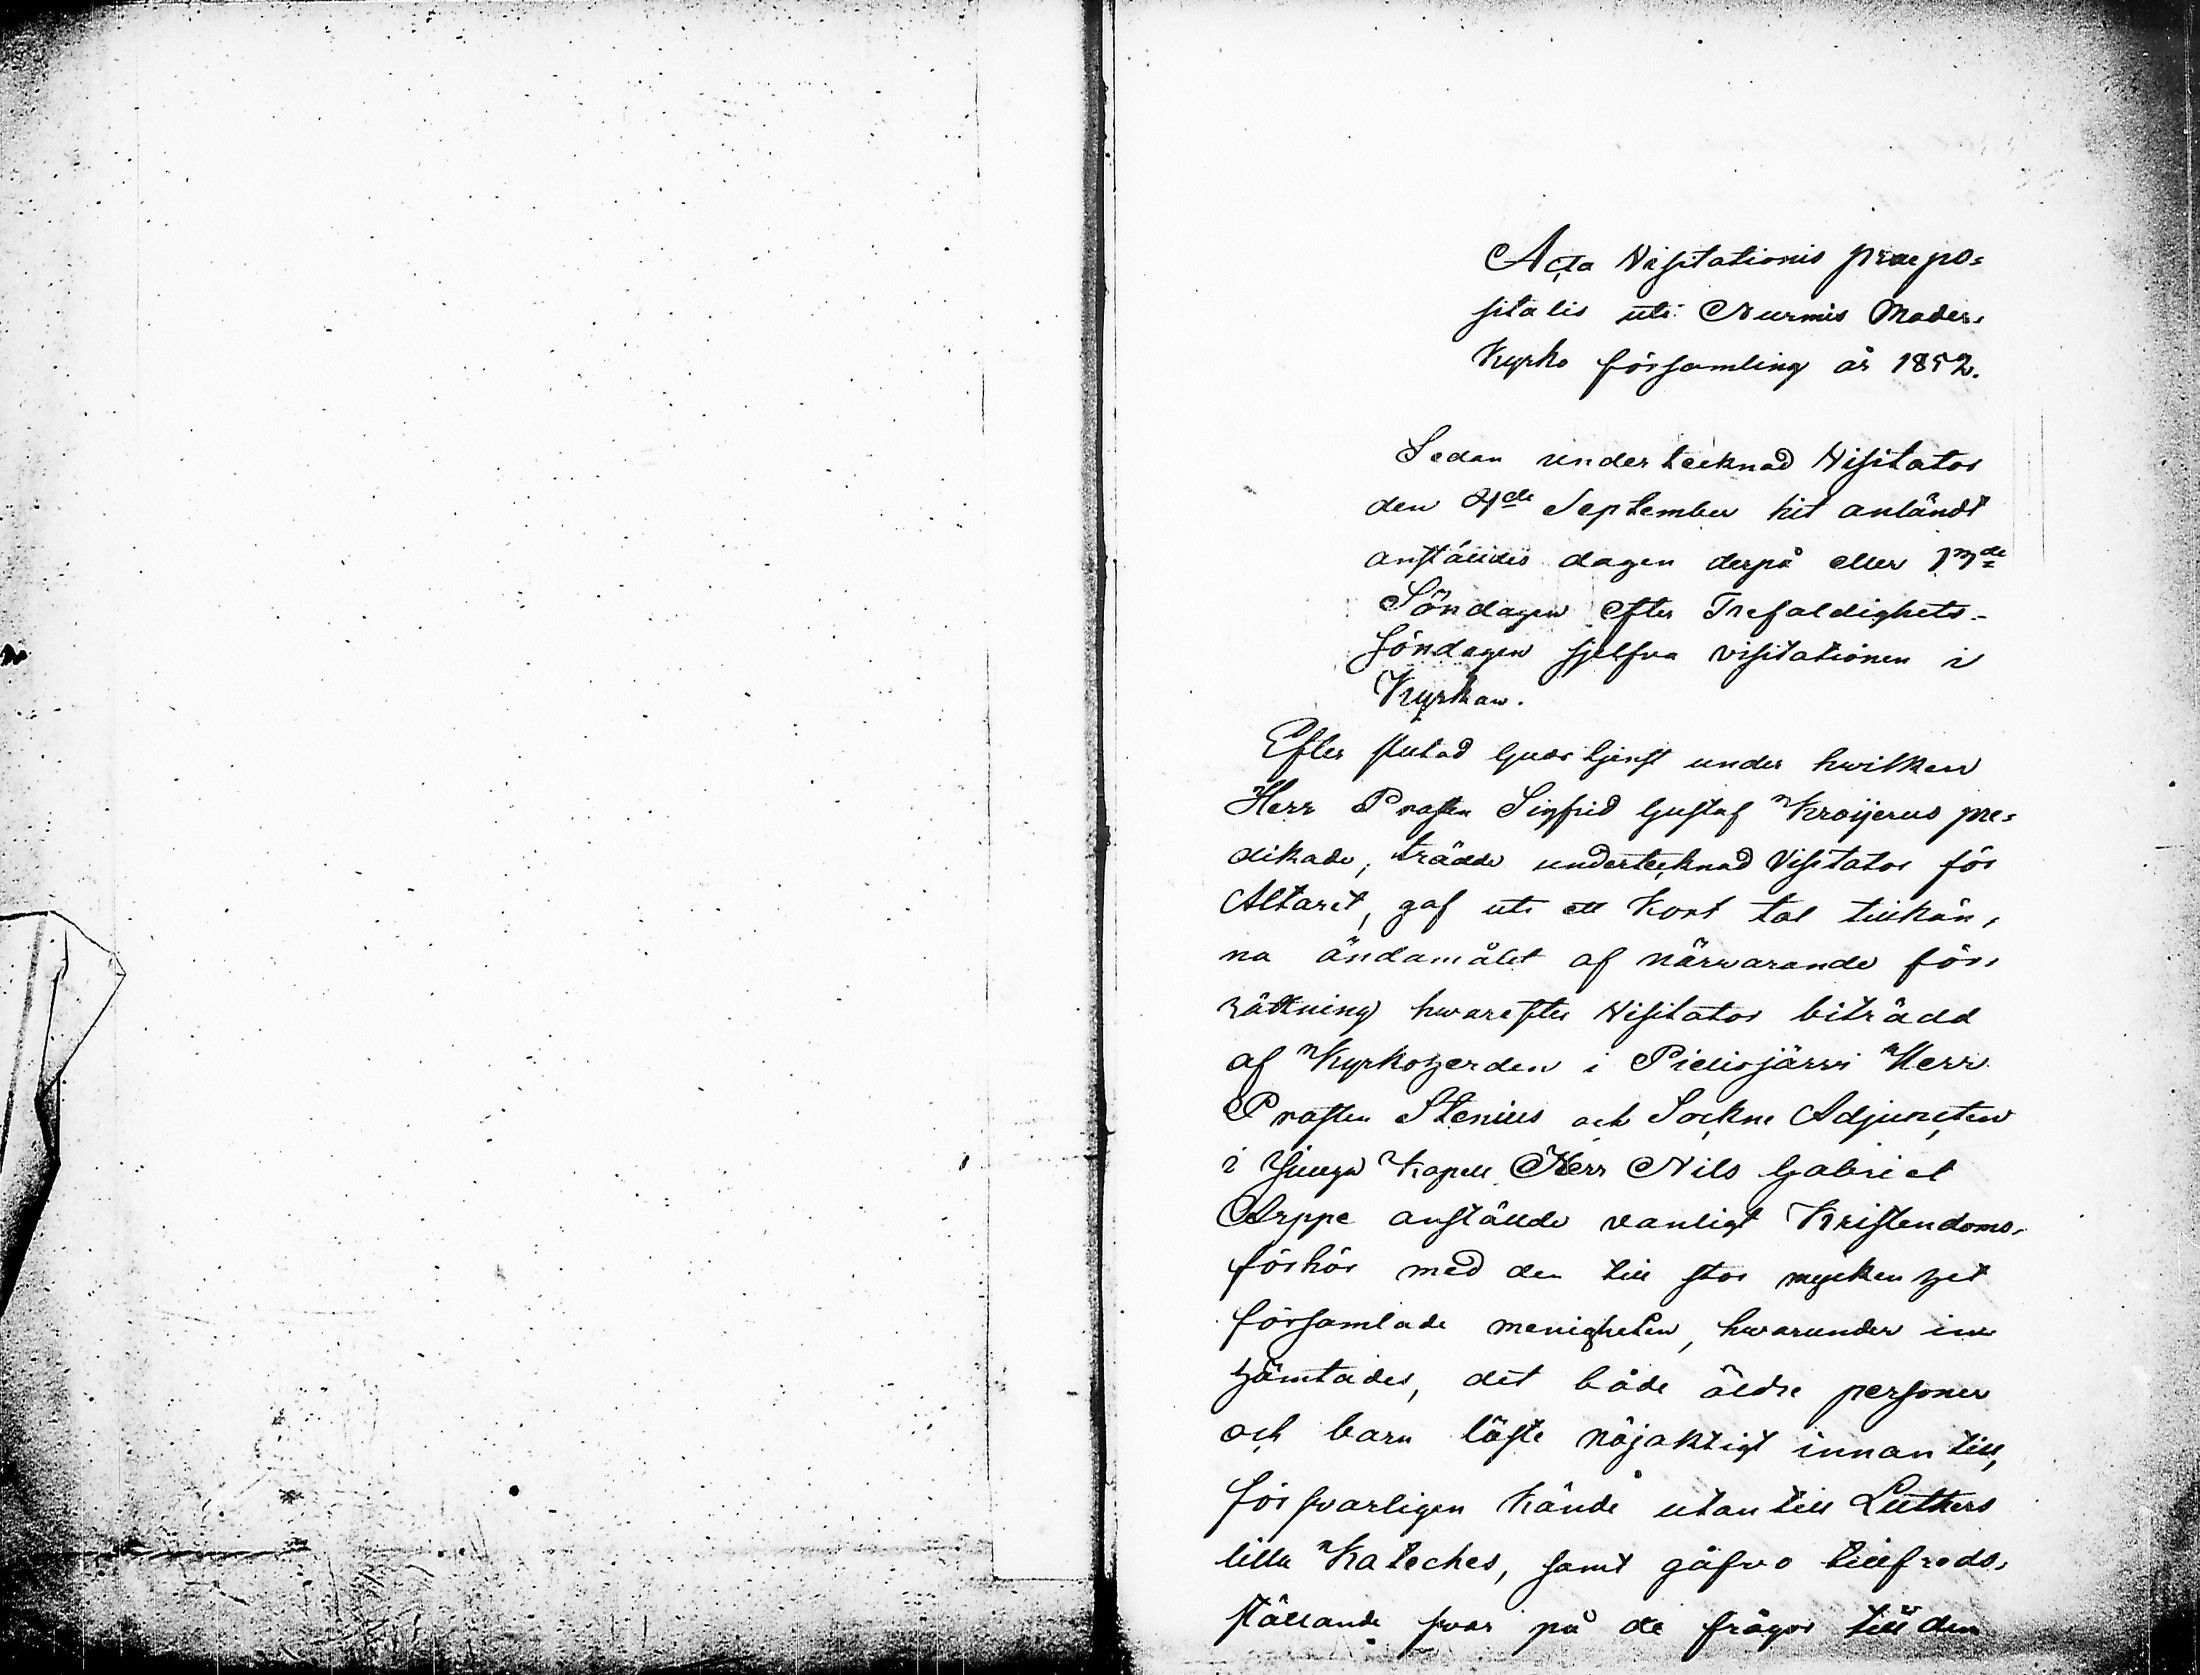 Acta Visitationis praepo=
sitalis uti Nurmis Moder=
Kyrko församling år 1852.
Sedan undertecknad Visitator
den 4de September hit anländt
anställdes dagen derpå eller 13de
Söndagen efter Trefaldighets-
söndagen sjelfva visitationen i
Kyrkan.
Efter slutad gudstjenst under hvilken
Herr Prosten Sigfrid Gustaf Kroijerus pre=
dikade, trädde undertecknad Visitator för
Altaret, gaf uti ett Kort tal tillkän=
na ändamålet af närvarande för=
rättning hvarefter Visitator biträdd
af Kyrkoherden i Pielisjärvi Herr
Prosten Stenius och Sockne Adjuncten
i Kapell Herr Nils Gabriel
Arppe anställde vanligt Kristendoms=
förhör med den till stor myckenhet
församlade menigheten, hvarunder in
hämtades, det både äldre personer
och barn läste nöjaktigt innantill,
försvarligen Kände utantill Luthers
lilla Kateches, samt gåfvo tillfreds=
ställande svar på de frågor till den